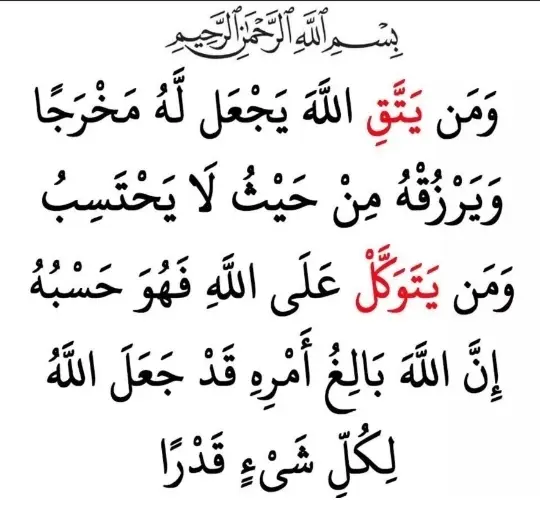 بِسْمِ اللَّهِ الرَّحْمَٰنِ الرَّحِيمِ
وَمَن يَتَّقِ اللَّهَ يَجْعَل لَّهُ مَخْرَجًا
وَيَرْزُقْهُ مِنْ حَيْثُ لَا يَحْتَسِبُ
وَمَن يَتَوَكَّلْ عَلَى اللَّهِ فَهُوَ حَسْبُهُ
إِنَّ اللَّهَ بَالِغُ أَمْرِهِ قَدْ جَعَلَ اللَّهُ
لِكُلِّ شَىْءٍ قَدْرًا